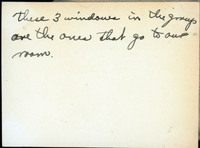 These 3 windows in the group
are the ones that go to our
room.